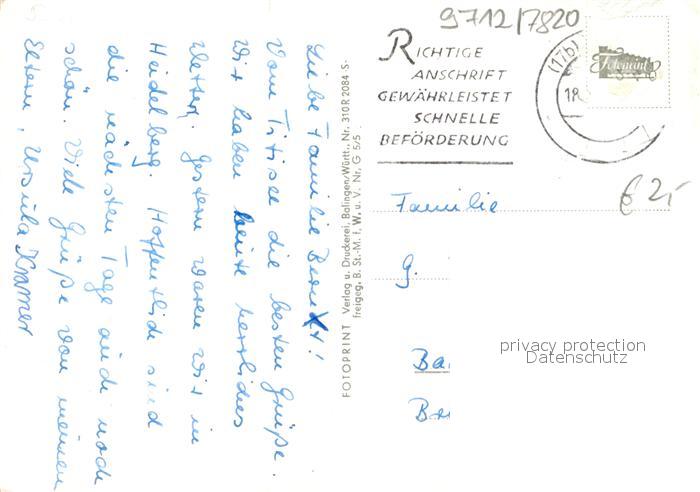 Liebe Familie Bernxt!
Vom Titisee die besten Grüße.
Wir haben heute herrliches
Wetter. Gestern waren wir in
Heidelberg. Hoffentlich sind
die nächsten Tage auch noch
schön. Viele Grüße von meinen
Eltern, Ursula Kramer
FOTOPRINT Verlag u. Druckerei, Balingen/Württ., Nr. 310 R 2084 -S-
freigeg. B. St.-M. f. W. u. V. Nr. G 5/5
9712/7820
RICHTIGE
ANSCHRIFT
GEWÄHRLEISTET
SCHNELLE
BEFÖRDERUNG
(17b)
18.
Fotoprint
€ 2,-
Familie
G.
privacy protection
Datenschutz
Ba
Be